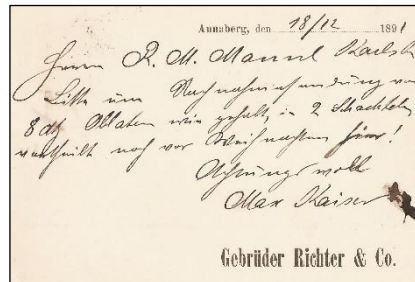 Annaberg, den 18/12 1891
Herrn R. M. Mannl Karlsb
Bitte um Nachnahmesendung von
8 dtz Oblaten wie gehabt, in 2 Schachteln
vertheilt noch vor Weihnachten hier!
Achtungsvoll
Max Kaiser
Gebrüder Richter & Co.